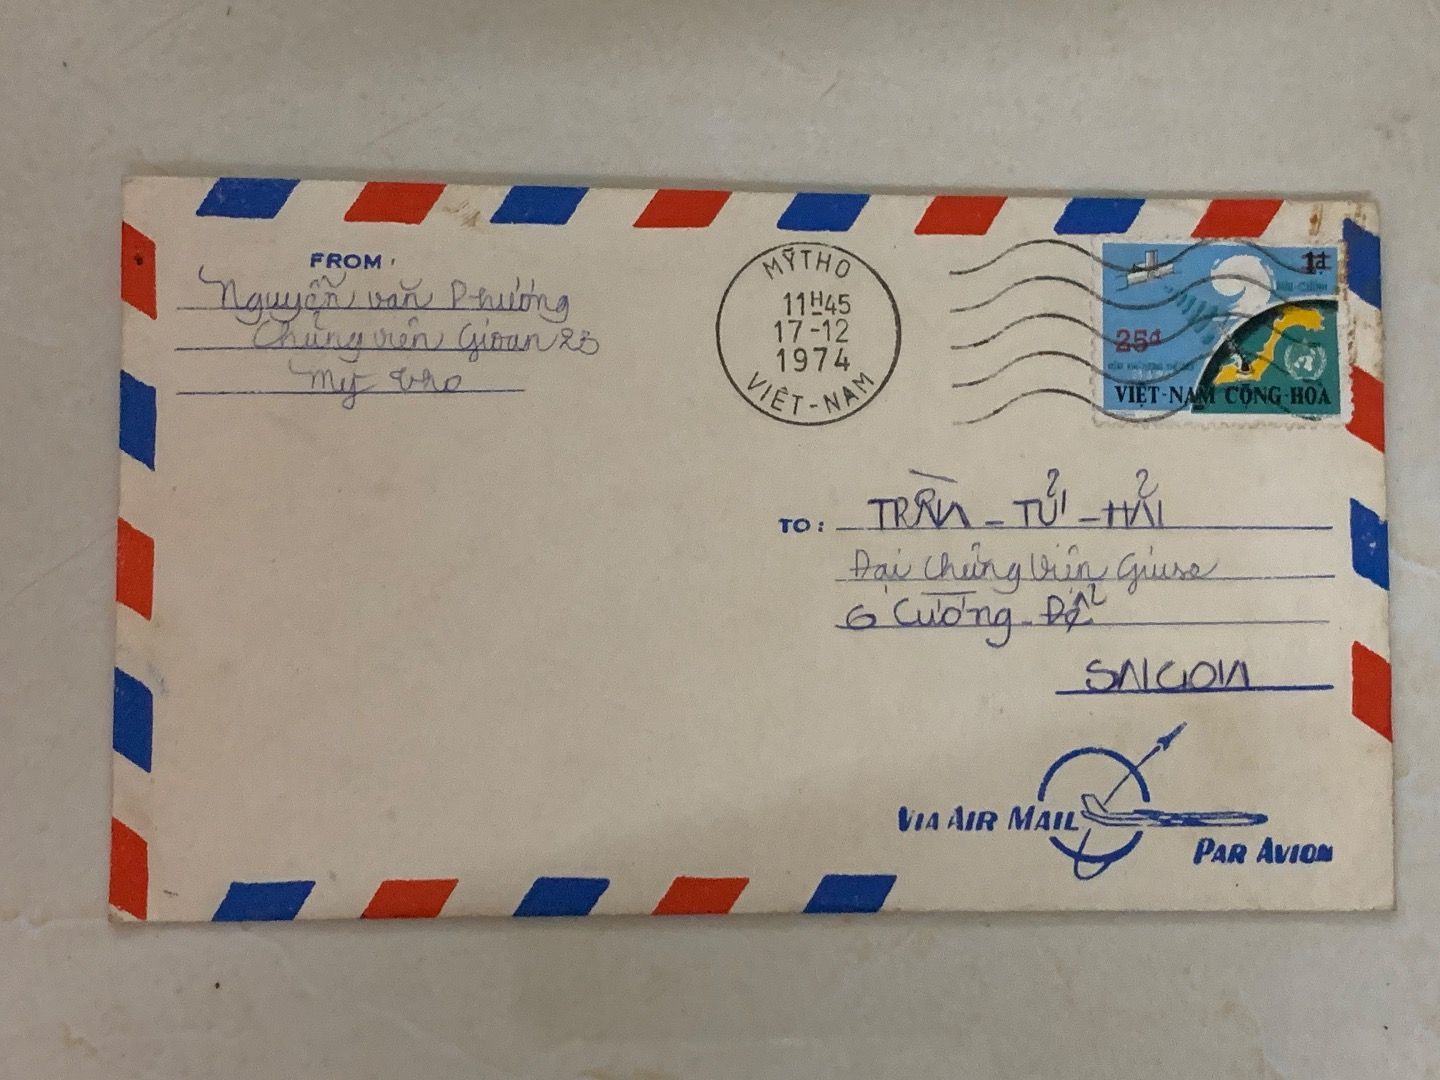 FROM:
Nguyễn văn Phương
Chủng viện Gioan 23
Mỹ tho
MỸTHO
11H45
17-12
1974
VIÊT-NAM
1đ
BƯU-CHÍNH
25đ
VIỆT-NAM CỘNG-HÒA
TO: TRẦN - TỬ - HẢI
Đại Chủng Viện Giuse
6 Cường-Để
SAIGON
VIA AIR MAIL
PAR AVION